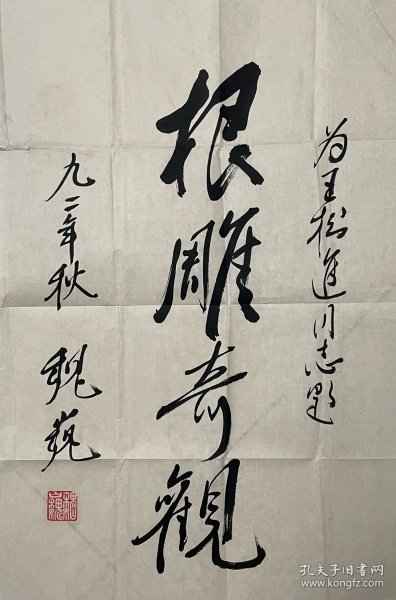 为王树進同志题
根雕奇觀
九二年秋 魏巍
孔夫子旧书网
www.kongfz.com